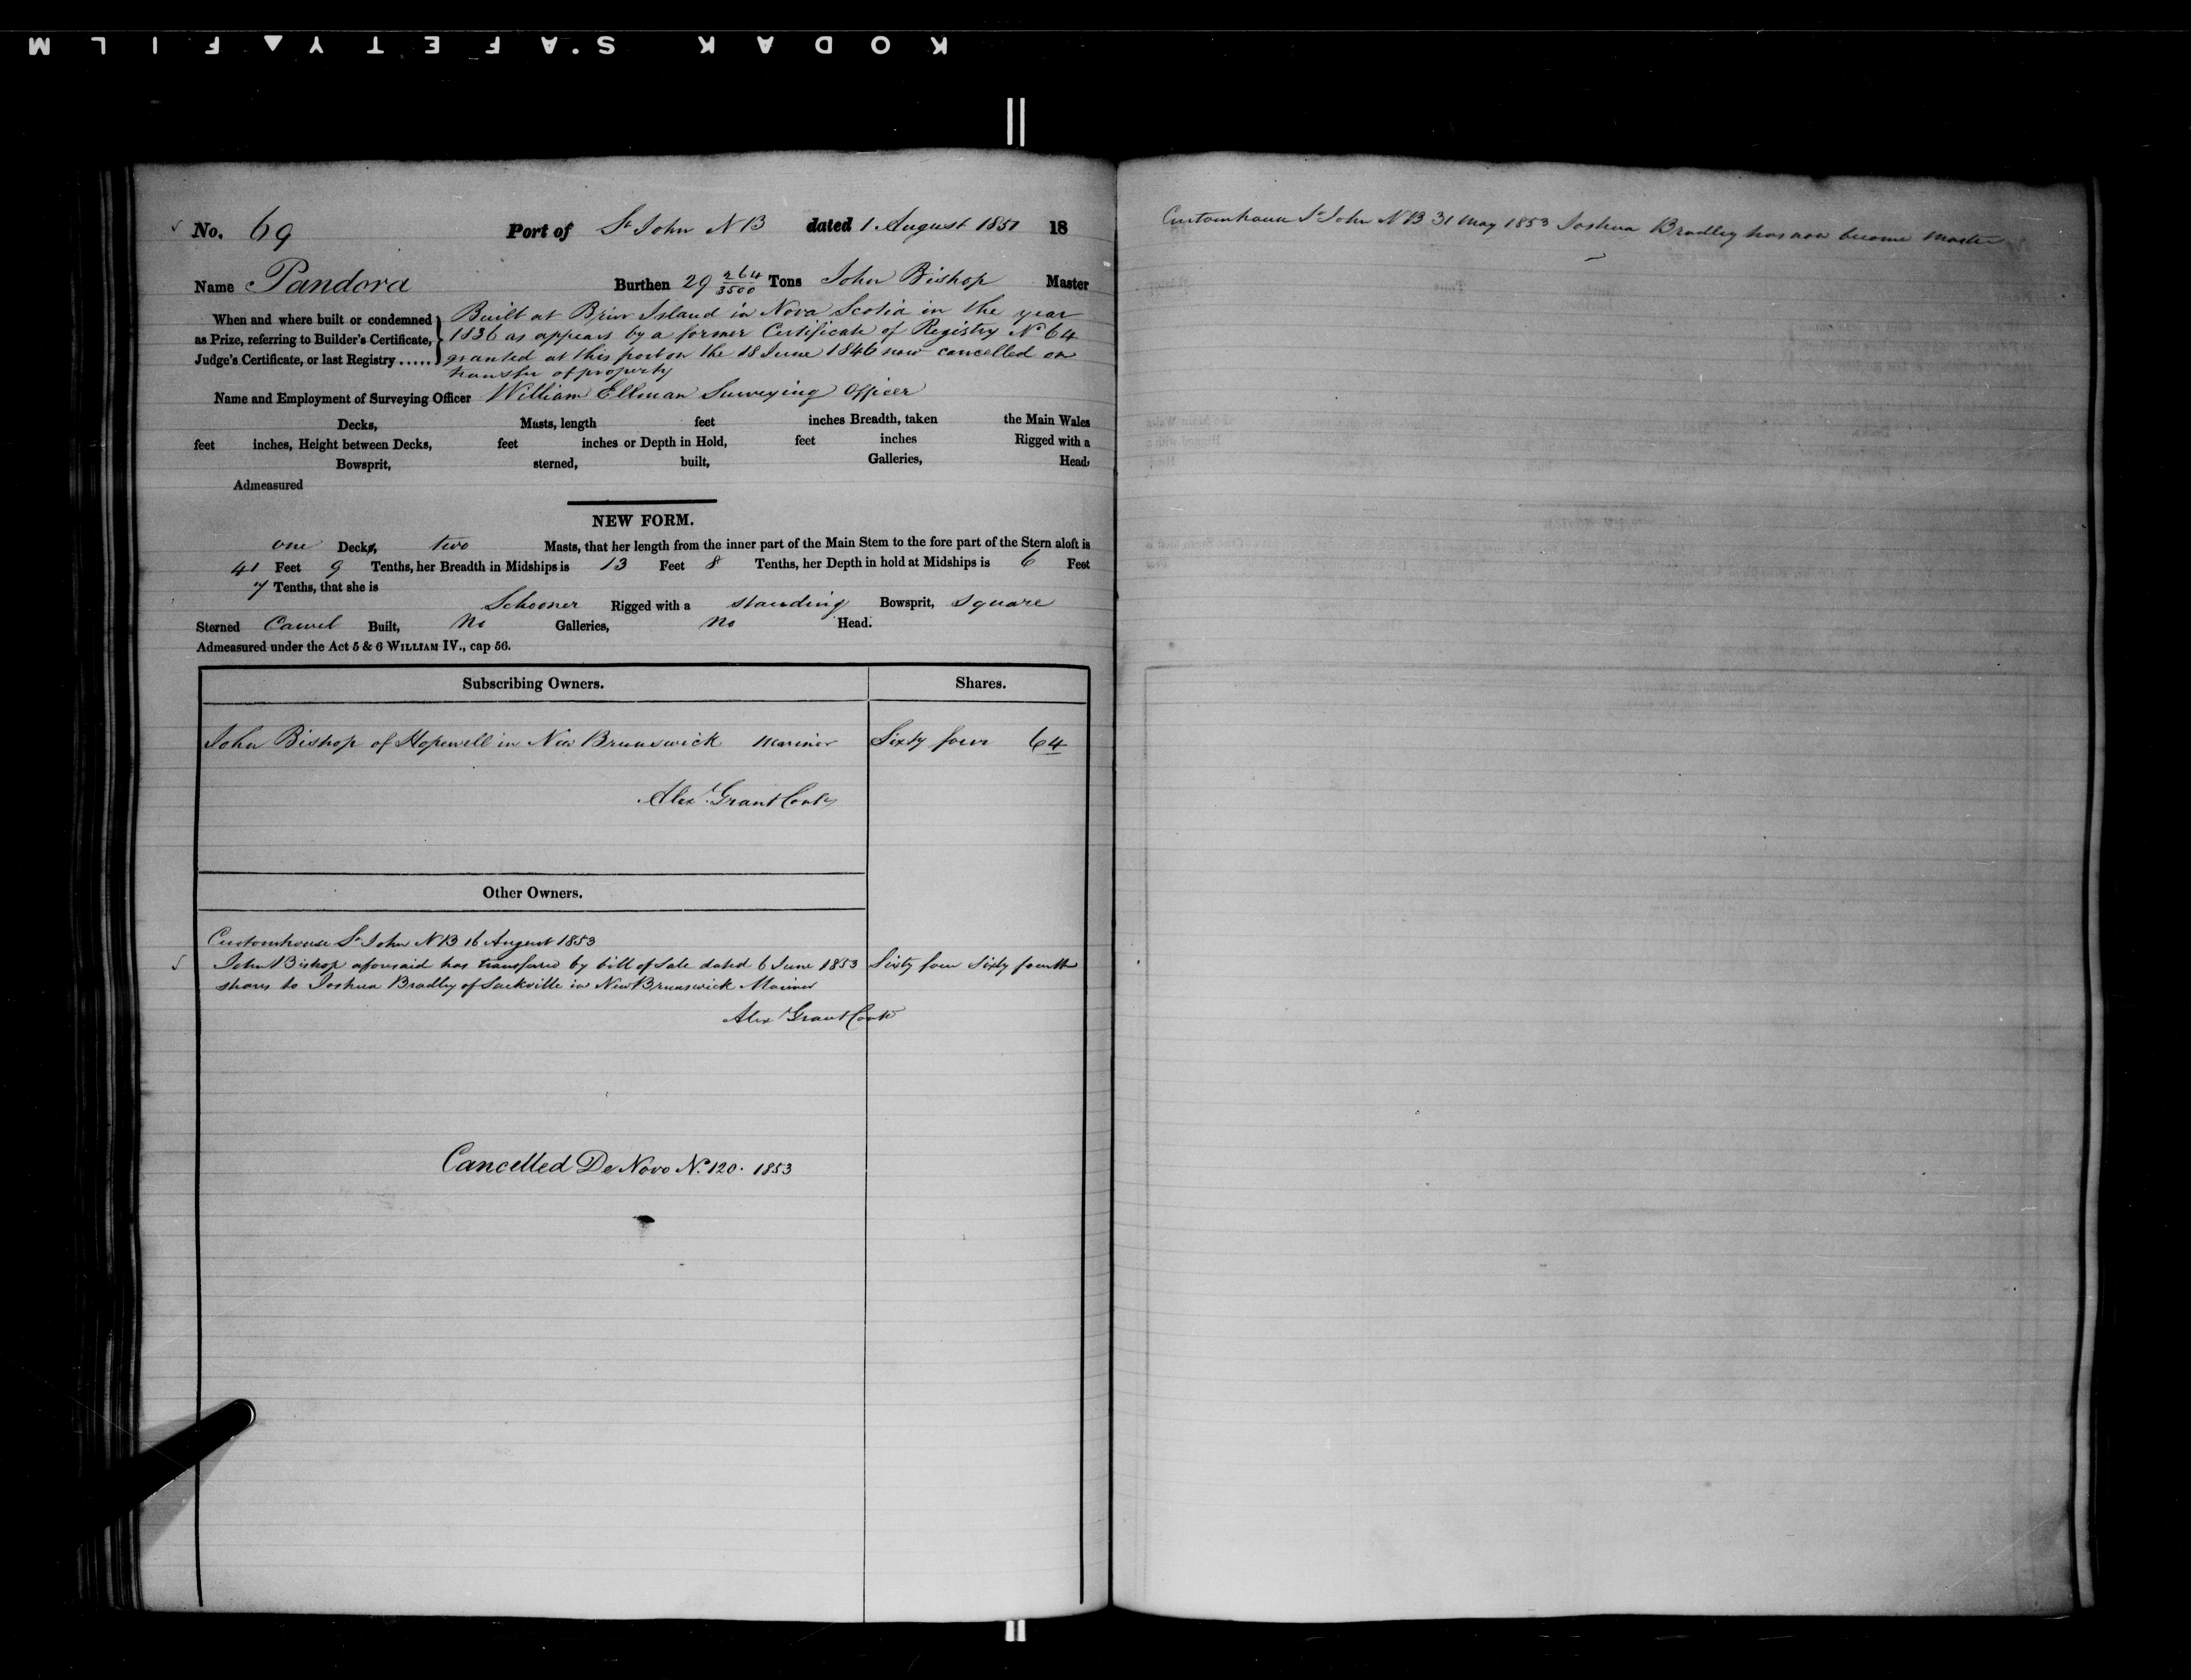 KODAK SAFETY FILM
No. 69 Port of St John NB dated 1 August 1851 18
Name Pandora Burthen 29 264/3500 Tons John Bishop Master
When and where built or condemned as Prize, referring to Builder's Certificate, Judge's Certificate, or last Registry .....
Built at Briar Island in Nova Scotia in the year
1836 as appears by a former Certificate of Registry No 64
granted at this port on the 18 June 1846 now cancelled on
transfer of property
Name and Employment of Surveying Officer William Ellman Surveying Officer
Decks, Masts, length feet inches Breadth, taken the Main Wales
feet inches, Height between Decks, feet inches or Depth in Hold, feet inches Rigged with a
Bowsprit, sterned, built, Galleries, Head,
Admeasured
NEW FORM.
one Decks, two Masts, that her length from the inner part of the Main Stem to the fore part of the Stern aloft is
41 Feet 9 Tenths, her Breadth in Midships is 13 Feet 8 Tenths, her Depth in hold at Midships is 6 Feet
7 Tenths, that she is
Schooner Rigged with a standing Bowsprit, square
Sterned Carvel Built, No Galleries, No Head.
Admeasured under the Act 5 & 6 WILLIAM IV., cap 56.
Subscribing Owners. Shares.
John Bishop of Hopewell in New Brunswick Mariner Sixty four 64
Alex Grant
Other Owners.
Customhouse St John NB 16 August 1853
John Bishop aforesaid has transfered by bill of Sale dated 6 June 1853 Sixty four Sixty fourth
shares to Joshua Bradley of Sackville in New Brunswick Mariner
Alex Grant
Cancelled De Novo No. 120. 1853
Customhouse St John NB 31 May 1853 Joshua Bradley has now become Master